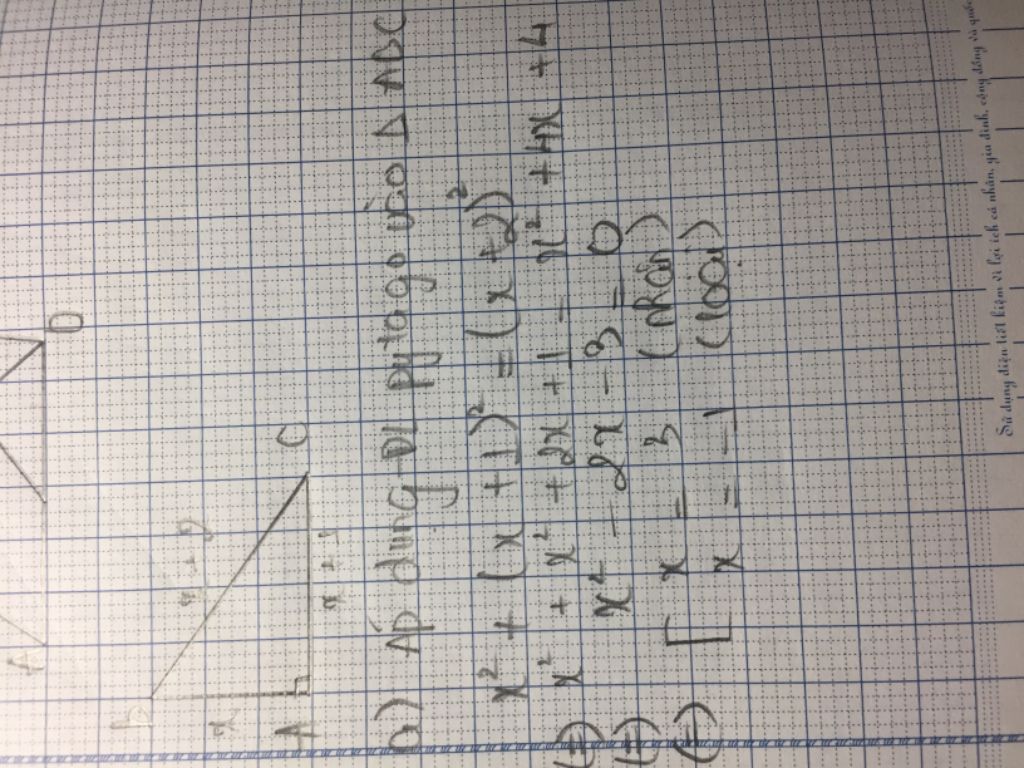 A D
B
x x + 2
A x + 1 C
a) Áp dụng ĐL pytago vào Δ ABC
x² + (x + 1)² = (x + 2)²
(=) x² + x² + 2x + 1 = x² + 4x + 4
(=) x² - 2x - 3 = 0
(=) [ x = 3 (nhận)
x = -1 (loại)
Sử dụng điện tiết kiệm vì lợi ích cá nhân, gia đình, cộng đồng và quốc